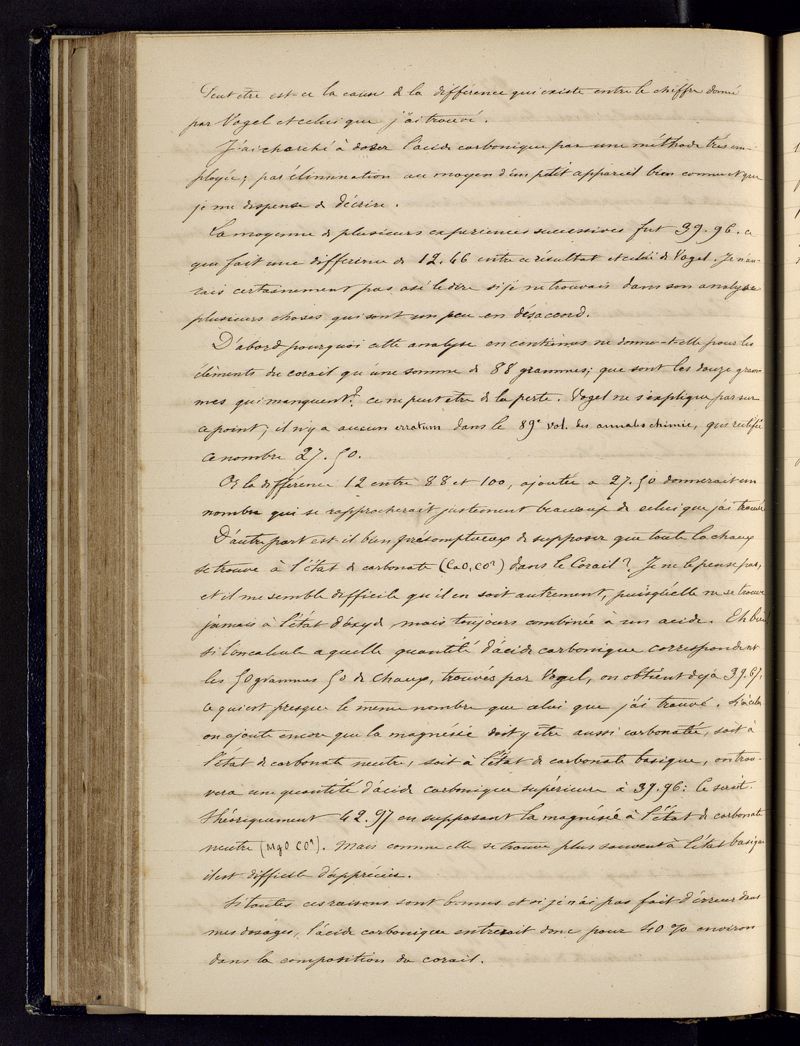 Peut être est-ce la cause de la différence qui existe entre le chiffre donné
par Vogel et celui que j'ai trouvé.
J'ai cherché à doser l'acide carbonique par une méthode très em-
ployée; par élimination au moyen d'un petit appareil bien connu et que
je me dispense de décrire.
La moyenne de plusieurs expériences successives fut 39.96. ce
qui fait une différence de 12.46 entre ce résultat et celui de Vogel. Je n'au-
rais certainement pas osé le dire si je ne trouvais dans son analyse
plusieurs choses qui sont un peu en désaccord.
D'abord pourquoi cette analyse en centièmes ne donne-t-elle pour les
éléments du corail qu'une somme de 88 grammes; que sont les douze gram-
mes qui manquent? ce ne peut être de la perte. Vogel ne s'explique pas sur
ce point; il n'y a aucun erratum dans le 89e vol. des annales chimie, qui rectifie
ce nombre 27.50.
Or la différence 12 entre 88 et 100, ajoutée à 27.50 donnerait un
nombre qui se rapprocherait justement beaucoup de celui que j'ai trouvé
D'autre part est-il bien présomptueux de supposer que toute la chaux
se trouve à l'état de carbonate (CaO, CO²) dans le Corail? Je ne le pense pas,
et il me semble difficile qu'il en soit autrement, puisqu'elle ne se trouve
jamais à l'état d'oxyde mais toujours combinée à un acide. Eh bien
si l'on calcule à quelle quantité d'acide carbonique correspondent
les 50 grammes 50 de chaux, trouvés par Vogel, on obtient déjà 39.67,
ce qui est presque le même nombre que celui que j'ai trouvé. Si à cela
on ajoute encore que la magnésie doit y être aussi carbonatée, soit à
l'état de carbonate neutre, soit à l'état de carbonate basique, on trou-
vera une quantité d'acide carbonique supérieure à 39.96: ce serait
théoriquement 42.97 en supposant la magnésie à l'état de carbonate
neutre (MgO CO²). Mais comme elle se trouve plus souvent à l'état basique
il est difficile d'apprécier.
Si toutes ces raisons sont bonnes et si je n'ai pas fait d'erreur dans
mes dosages, l'acide carbonique entrerait donc pour 40 % environ
dans la composition du corail.